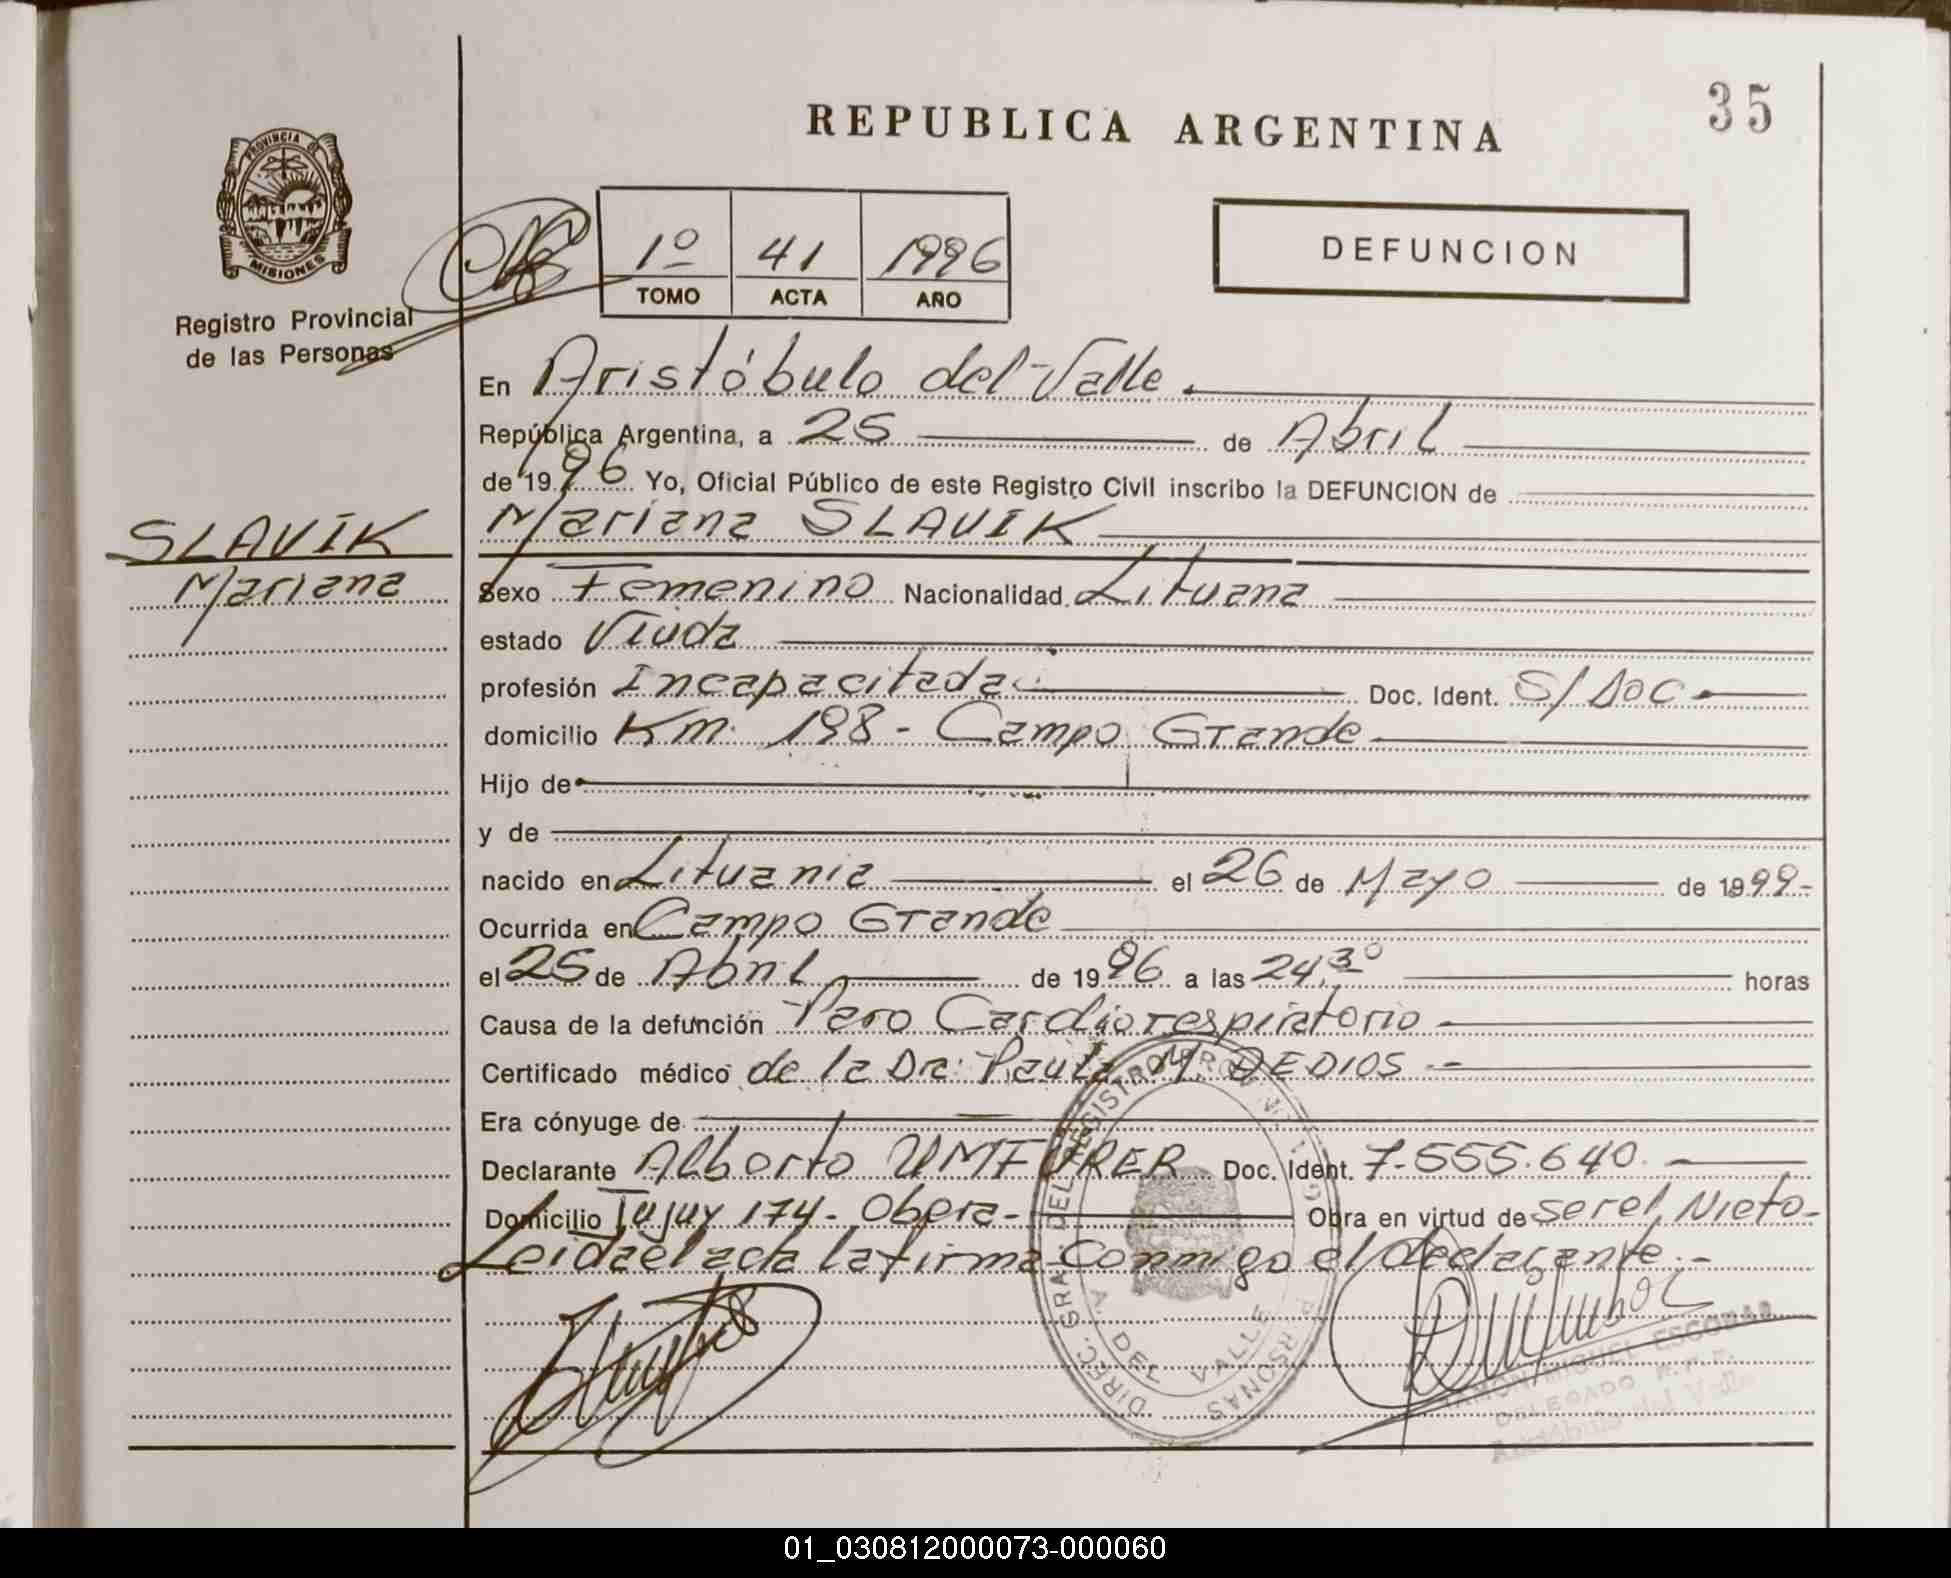 35
REPUBLICA ARGENTINA
PROVINCIA DE
MISIONES
Registro Provincial
de las Personas
1º 41 1996
TOMO ACTA AÑO
DEFUNCION
En Aristóbulo del Valle.
República Argentina, a 25 de Abril
de 1996 Yo, Oficial Público de este Registro Civil inscribo la DEFUNCION de
SLAVIK
Mariana
Mariana SLAVIK
Sexo Femenino Nacionalidad Lituana
estado Viuda
profesión Incapacitada Doc. Ident. S/Doc.
domicilio Km. 198 - Campo Grande
Hijo de
y de
nacido en Lituania el 26 de Mayo de 1999-
Ocurrida en Campo Grande
el 25 de Abril de 1996 a las 24,30 horas
Causa de la defunción Paro Cardiorespiratorio
Certificado médico de la Dra. Paula M. DEDIOS -
Era cónyuge de
Declarante Alberto UMFURER Doc. Ident. 7.555.640.
Domicilio Jujuy 174- Obera- Obra en virtud de serel Nieto-
Leidaelacta lafirma Conmigo el declarante.-
DIREC. GRAL DEL REGISTRO PROVINCIAL
PERSONAS
A. DEL VALLE
RAMON MIGUEL ESCOBAR
DELEGADO R.P.P.
Aristóbulo del Valle
01_030812000073-000060